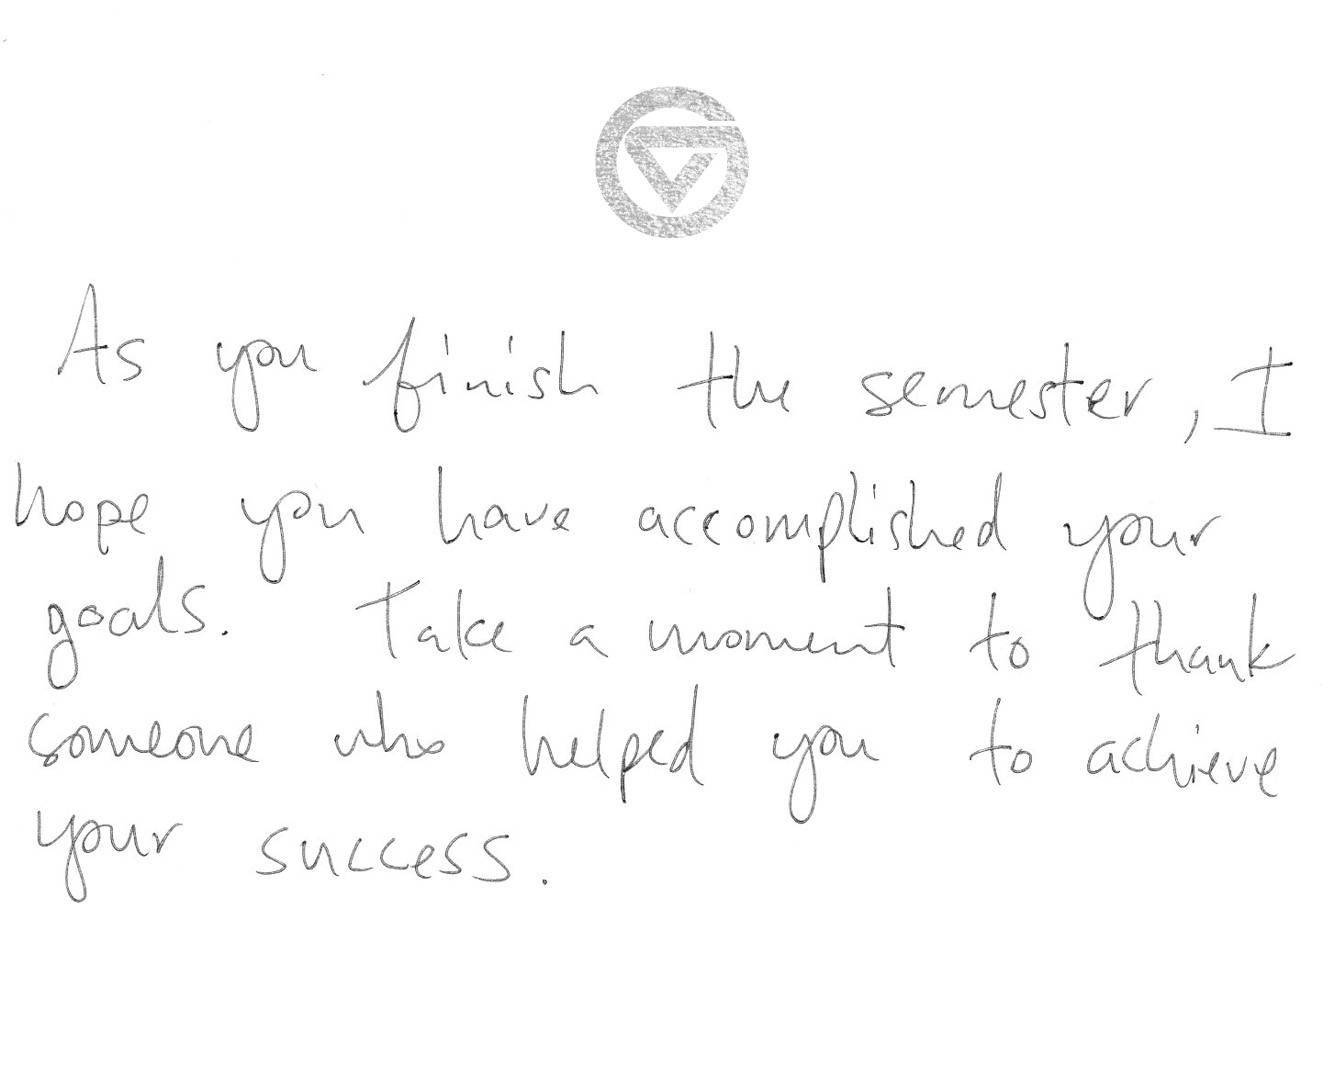 As you finish the semester, I
hope you have accomplished your
goals. Take a moment to thank
someone who helped you to achieve
your success.